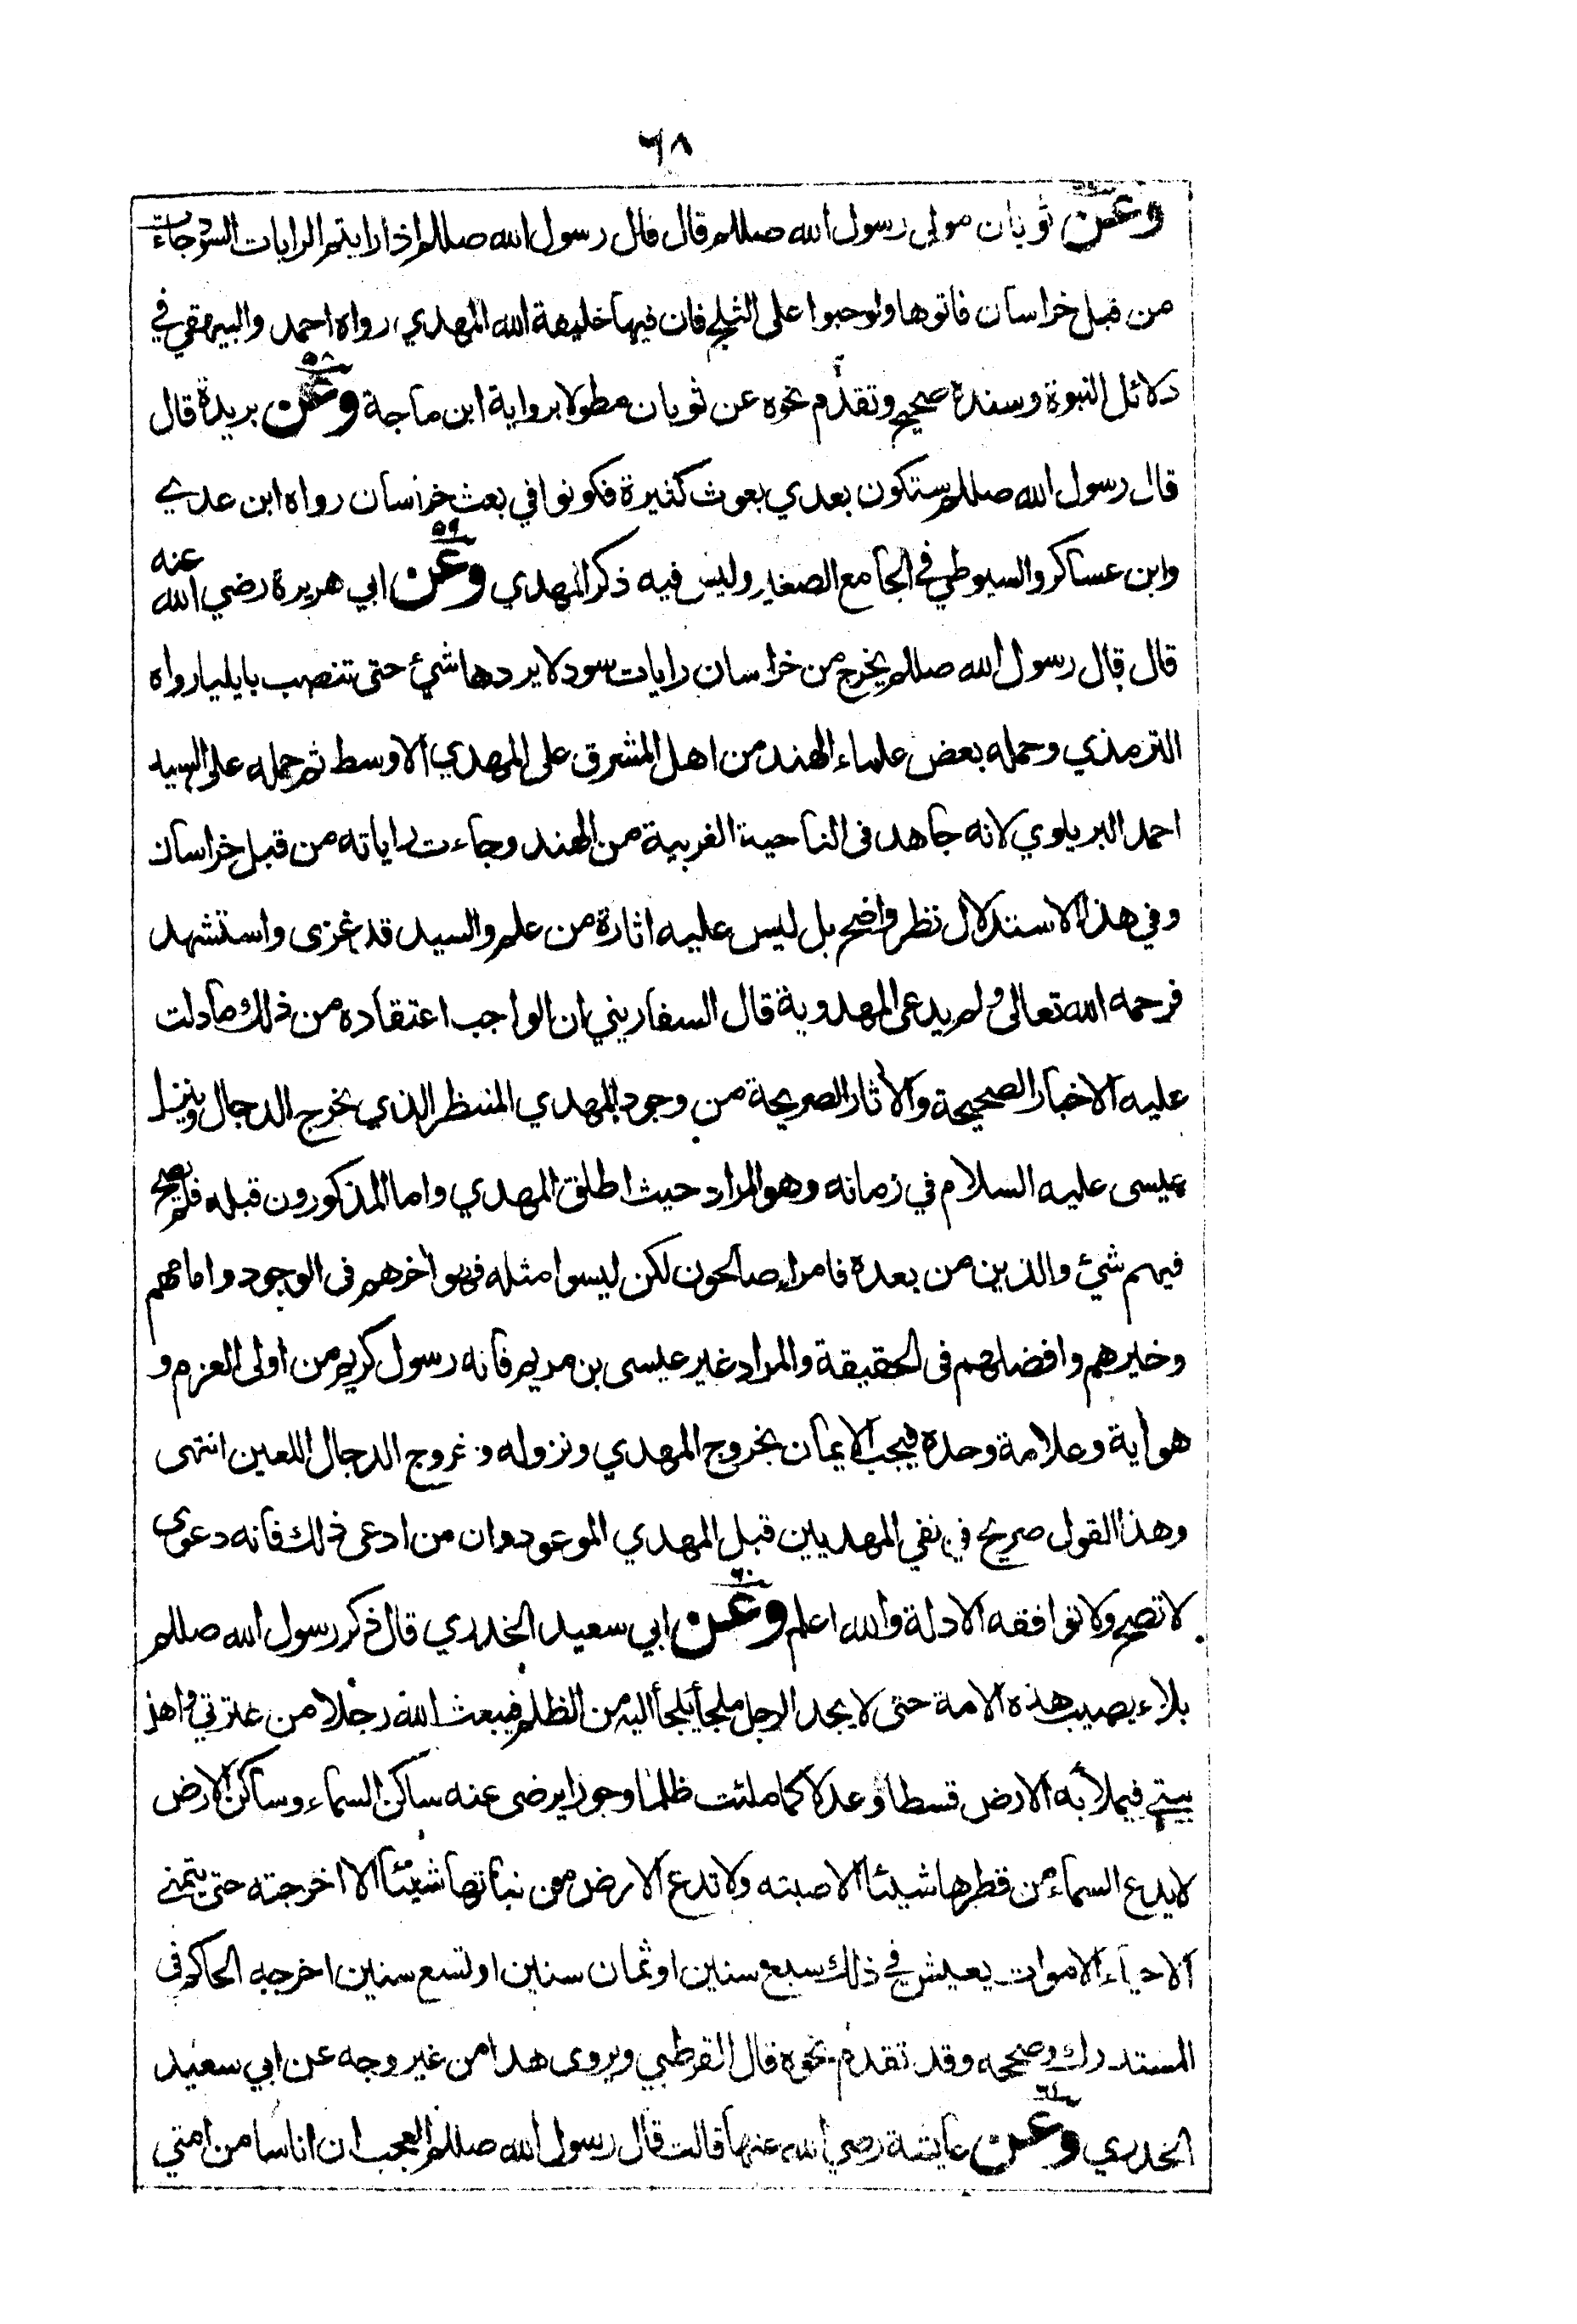 ٦٨
وعن ثوبان مولى رسول الله صللم قال قال رسول الله صللم اذا رايتم الرايات السود جاءت
من قبل خراسان فاتوها ولو حبوا على الثلج فان فيها خليفة الله المهدي، رواه احمد والبيهقي في
دلائل النبوة وسنده صحيح وتقدم نحوه عن ثوبان مطولا برواية ابن ماجة ٥٨ وعن بريدة قال
قال رسول الله صللم ستكون بعدي بعوث كثيرة فكونوا في بعث خراسان رواه ابن عدي
وابن عساكر والسيوطي في الجامع الصغير وليس فيه ذكر المهدي ٥٩ وعن ابي هريرة رضي الله عنه
قال قال رسول الله صللم يخرج من خراسان رايات سود لا يردها شيئ حتى تنصب بايليا رواه
الترمذي وحمله بعض علماء الهند من اهل المشرق على المهدي الاوسط ثم حمله على السيد
احمد البريلوي لانه جاهد فى الناحية الغربية من الهند وجاءت راياته من قبل خراسان
وفي هذا الاستدلال نظر واضح بل ليس عليه اثارة من علم والسيد قد غزى واستشهد
فرحمه الله تعالى ولم يدعى المهدوية قال السفاريني ان الواجب اعتقاده من ذلك ما دلت
عليه الاخبار الصحيحة والأثار الصريحة من وجود المهدي المنتظر الذي يخرج الدجال وينزل
عيسى عليه السلام في زمانه وهو المراد حيث اطلق المهدي واما المذكورون قبله فلم يصح
فيهم شيئ والذين من بعده فامراء صالحون لكن ليسوا مثله فهو أخرهم فى الوجود وامامهم
وخيرهم وافضلهم فى الحقيقة والمراد غير عيسى بن مريم فانه رسول كريم من اولى العزم و
هو أية وعلامة وحده فيجب الايمان بخروج المهدي ونزوله وخروج الدجال اللعين انتهى
وهذا القول صريح في نفي المهديين قبل المهدي الموعود وان من ادعى ذلك فانه دعوى
لا تصح ولا توافقه الادلة والله اعلم ٦٠ وعن ابي سعيد الخدري قال ذكر رسول الله صللم
بلاء يصيب هذه الامة حتى لا يجد الرجل ملجأ يلجأ اليه من الظلم فيبعث الله رجلا من عترتي واهل
بيتي فيملأ به الارض قسطا وعدلا كما ملئت ظلما وجورا يرضى عنه ساكن السماء وساكن الارض
لا يدع السماء من قطرها شيئا الا صبته ولا تدع الارض من نباتها شيئا الا اخرجته حتى يتمنى
الاحياء الاموات يعيش في ذلك سبع سنين او ثمان سنين او تسع سنين اخرجه الحاكم فى
المستدرك وصححه وقد تقدم نحوه قال القرطبي ويروى هذا من غير وجه عن ابي سعيد
الخدري ٦١ وعن عايشة رضي الله عنها قالت قال رسول الله صللم العجب ان اناسا من امتي